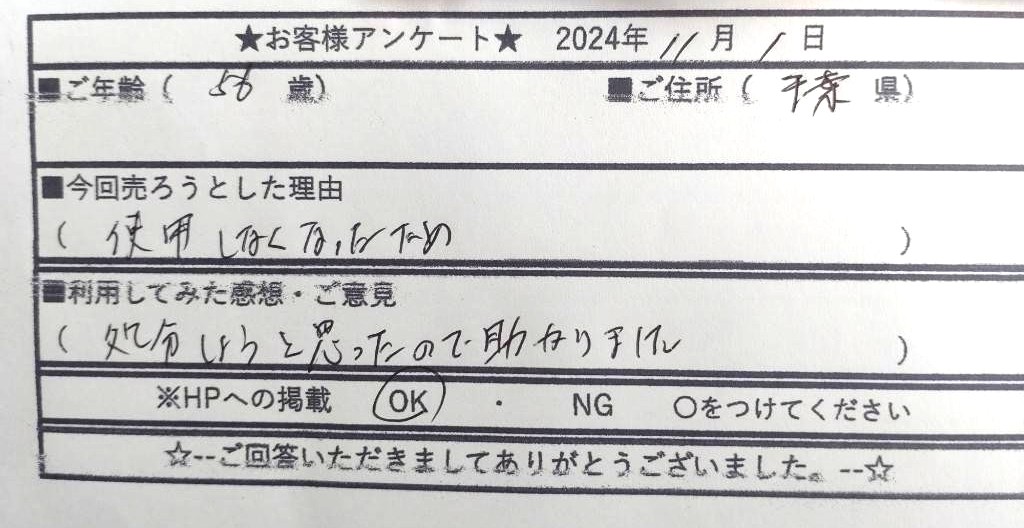 ★お客様アンケート★ 2024年 11月 1日
■ご年齢( 56 歳) ■ご住所( 千葉 県)
■今回売ろうとした理由
( 使用しなくなったため )
■利用してみた感想・ご意見
( 処分しようと思ったので助かりました )
※HPへの掲載 OK ・ NG ○をつけてください
☆--ご回答いただきましてありがとうございました。--☆